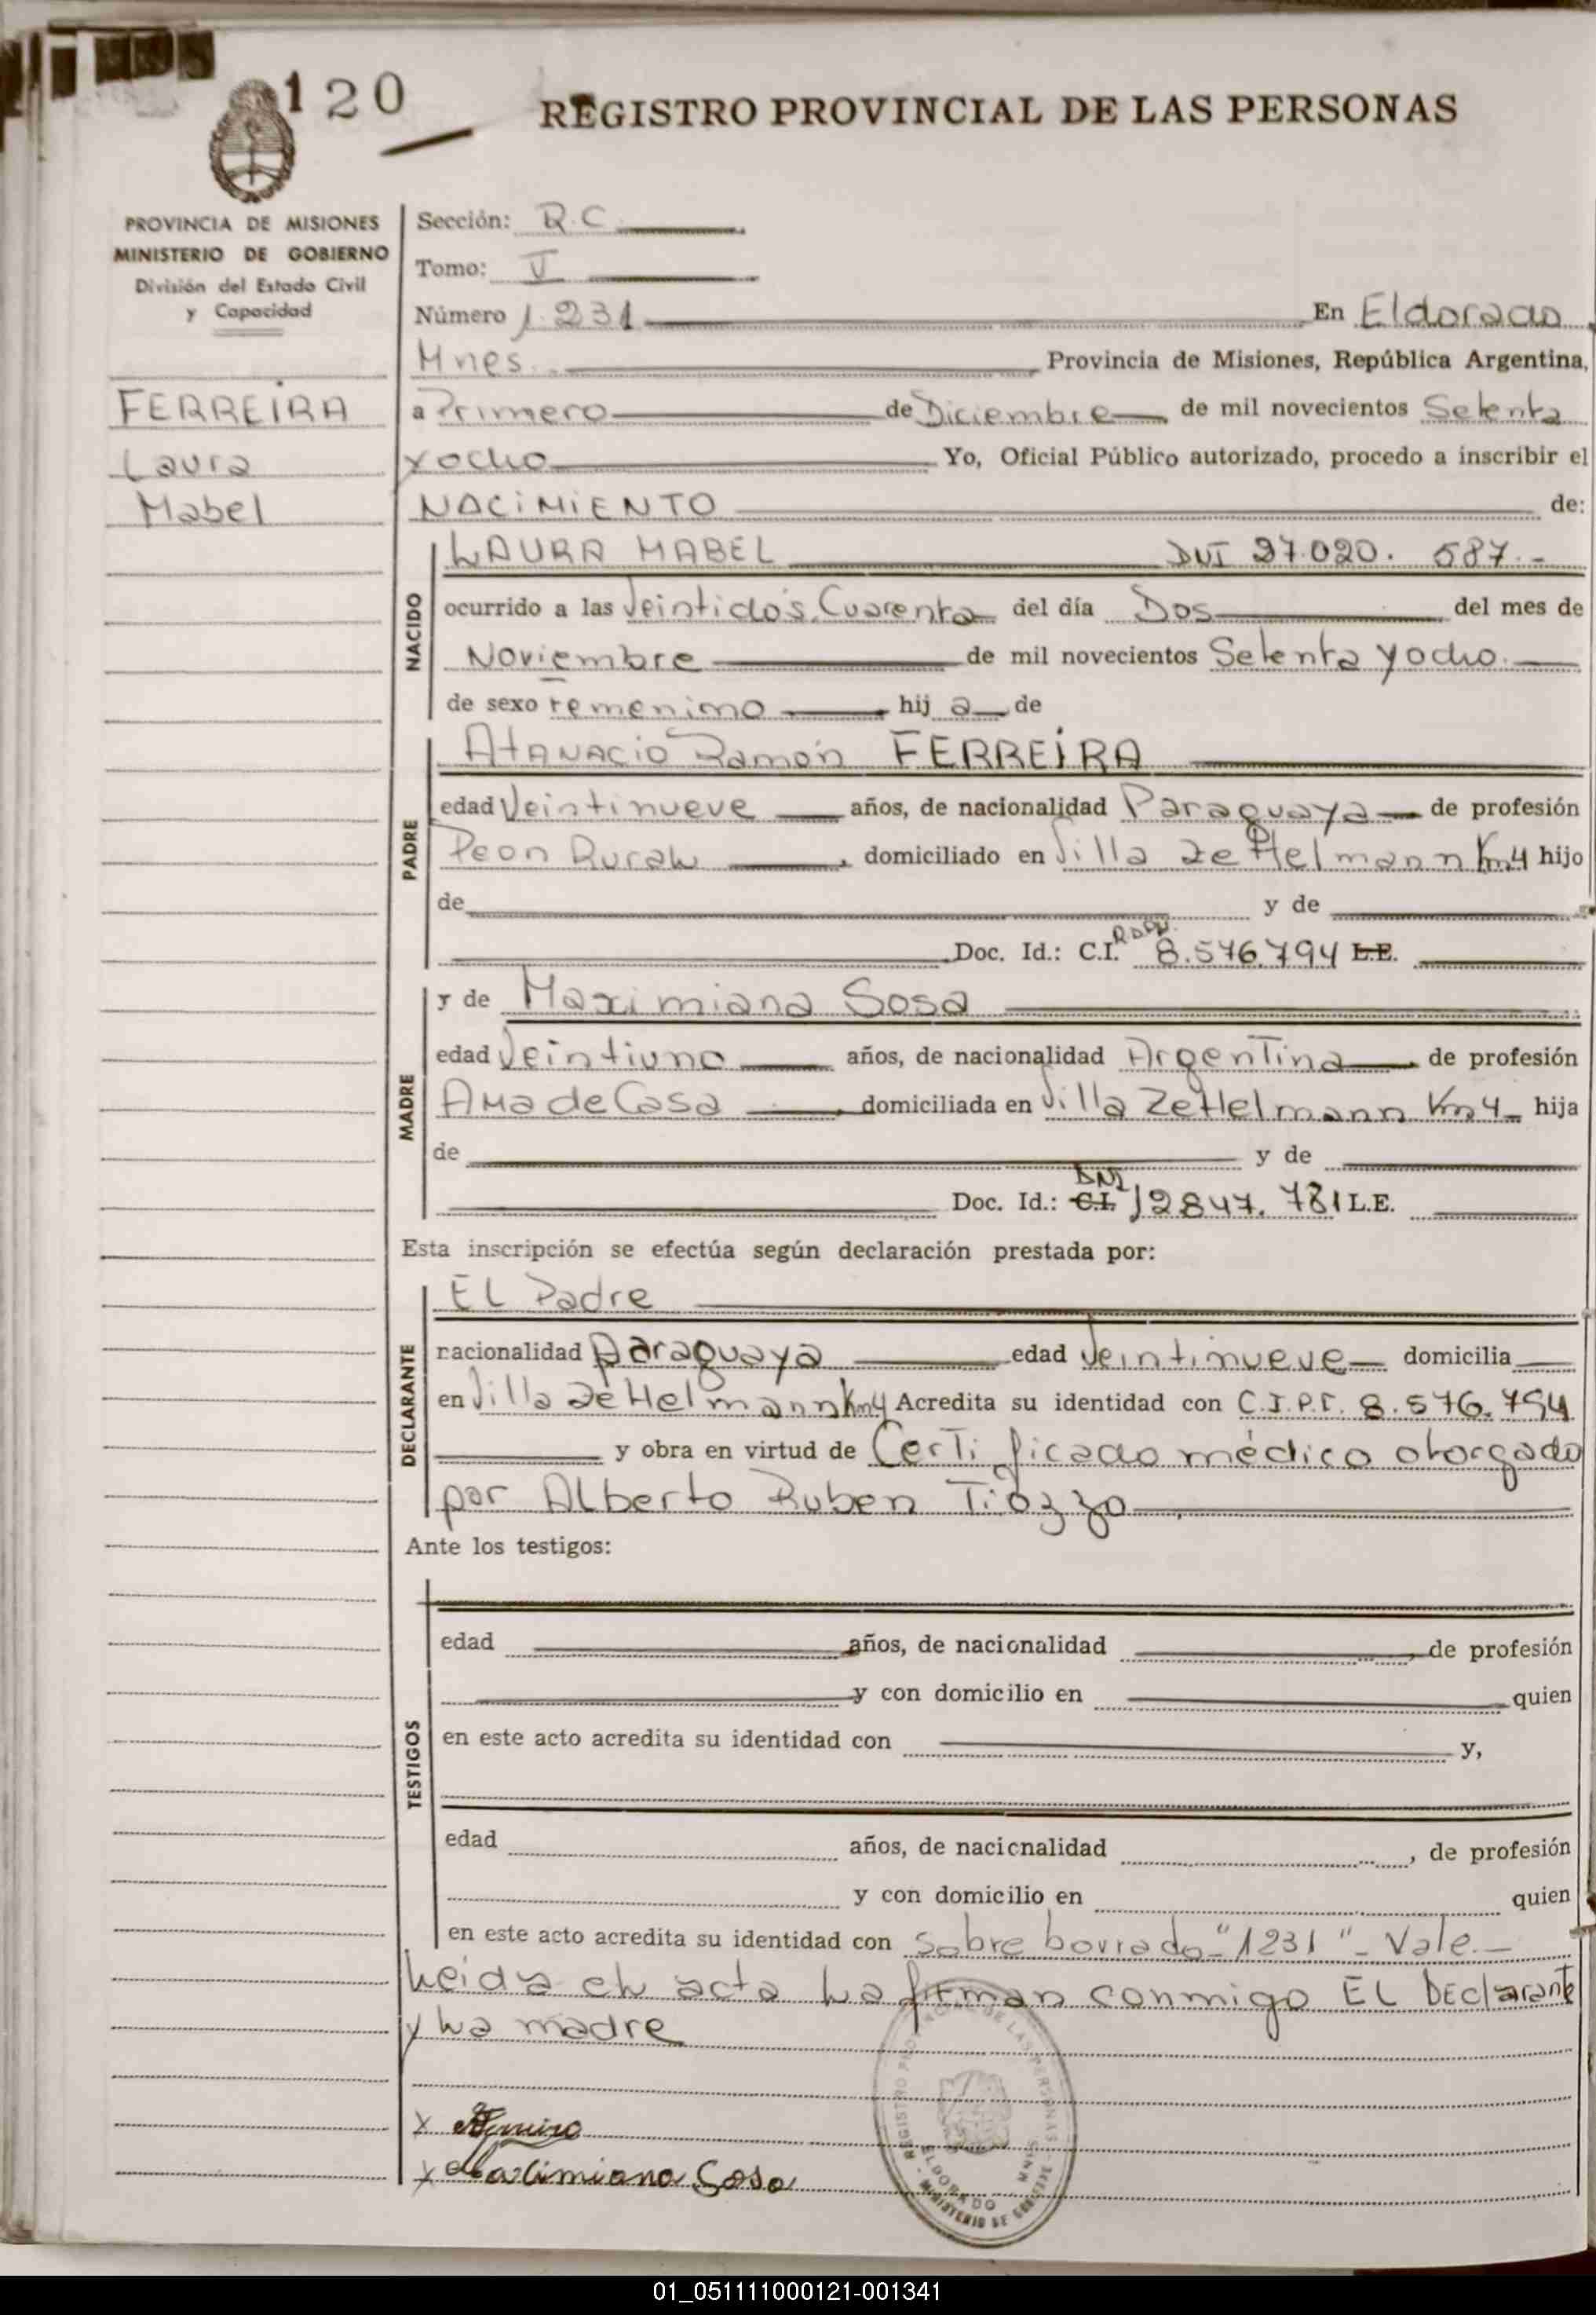 120
REGISTRO PROVINCIAL DE LAS PERSONAS
PROVINCIA DE MISIONES
MINISTERIO DE GOBIERNO
División del Estado Civil
y Capacidad
FERREIRA
Laura
Mabel
Sección: R.C
Tomo: V
Número 1.231 En Eldorado
Mnes. Provincia de Misiones, República Argentina,
a Primero de Diciembre de mil novecientos Setenta
y ocho Yo, Oficial Público autorizado, procedo a inscribir el
NACIMIENTO de:
NACIDO
LAURA MABEL DNI 27.020. 587.-
ocurrido a las Veintidós Cuarenta del día Dos del mes de
Noviembre de mil novecientos Setenta y ocho.
de sexo Femenimo hij a de
PADRE
Atanacio Ramón FERREIRA
edad Veintinueve años, de nacionalidad Paraguaya de profesión
Peon Rural, domiciliado en Villa Zethelmann Km4 hijo
de y de
Doc. Id.: C.I. 8.576.794 L.E.
MADRE
y de Maximiana Sosa
edad Veintiuno años, de nacionalidad Argentina de profesión
Ama de Casa, domiciliada en Villa Zethelmann Km4 hija
de y de
Doc. Id.: C.I. DNI 12847.781 L.E.
Esta inscripción se efectúa según declaración prestada por:
DECLARANTE
El Padre
nacionalidad Paraguaya edad Veintinueve domicilia
en Villa Zethelmann Km4 Acredita su identidad con C.I.P.F. 8.576.794
y obra en virtud de Certificado médico otorgado
por Alberto Ruben Tiozzo
Ante los testigos:
TESTIGOS
edad años, de nacionalidad, de profesión
y con domicilio en quien
en este acto acredita su identidad con y,
edad años, de nacionalidad, de profesión
y con domicilio en quien
en este acto acredita su identidad con Sobre borrado "1231" - Vale.-
Leida el acta la firman conmigo El Declarante
y la madre
REGISTRO PROVINCIAL DE LAS PERSONAS
ELDORADO MNES
MINISTERIO DE GOBIERNO
x
x Maximiana Sosa
01_051111000121-001341